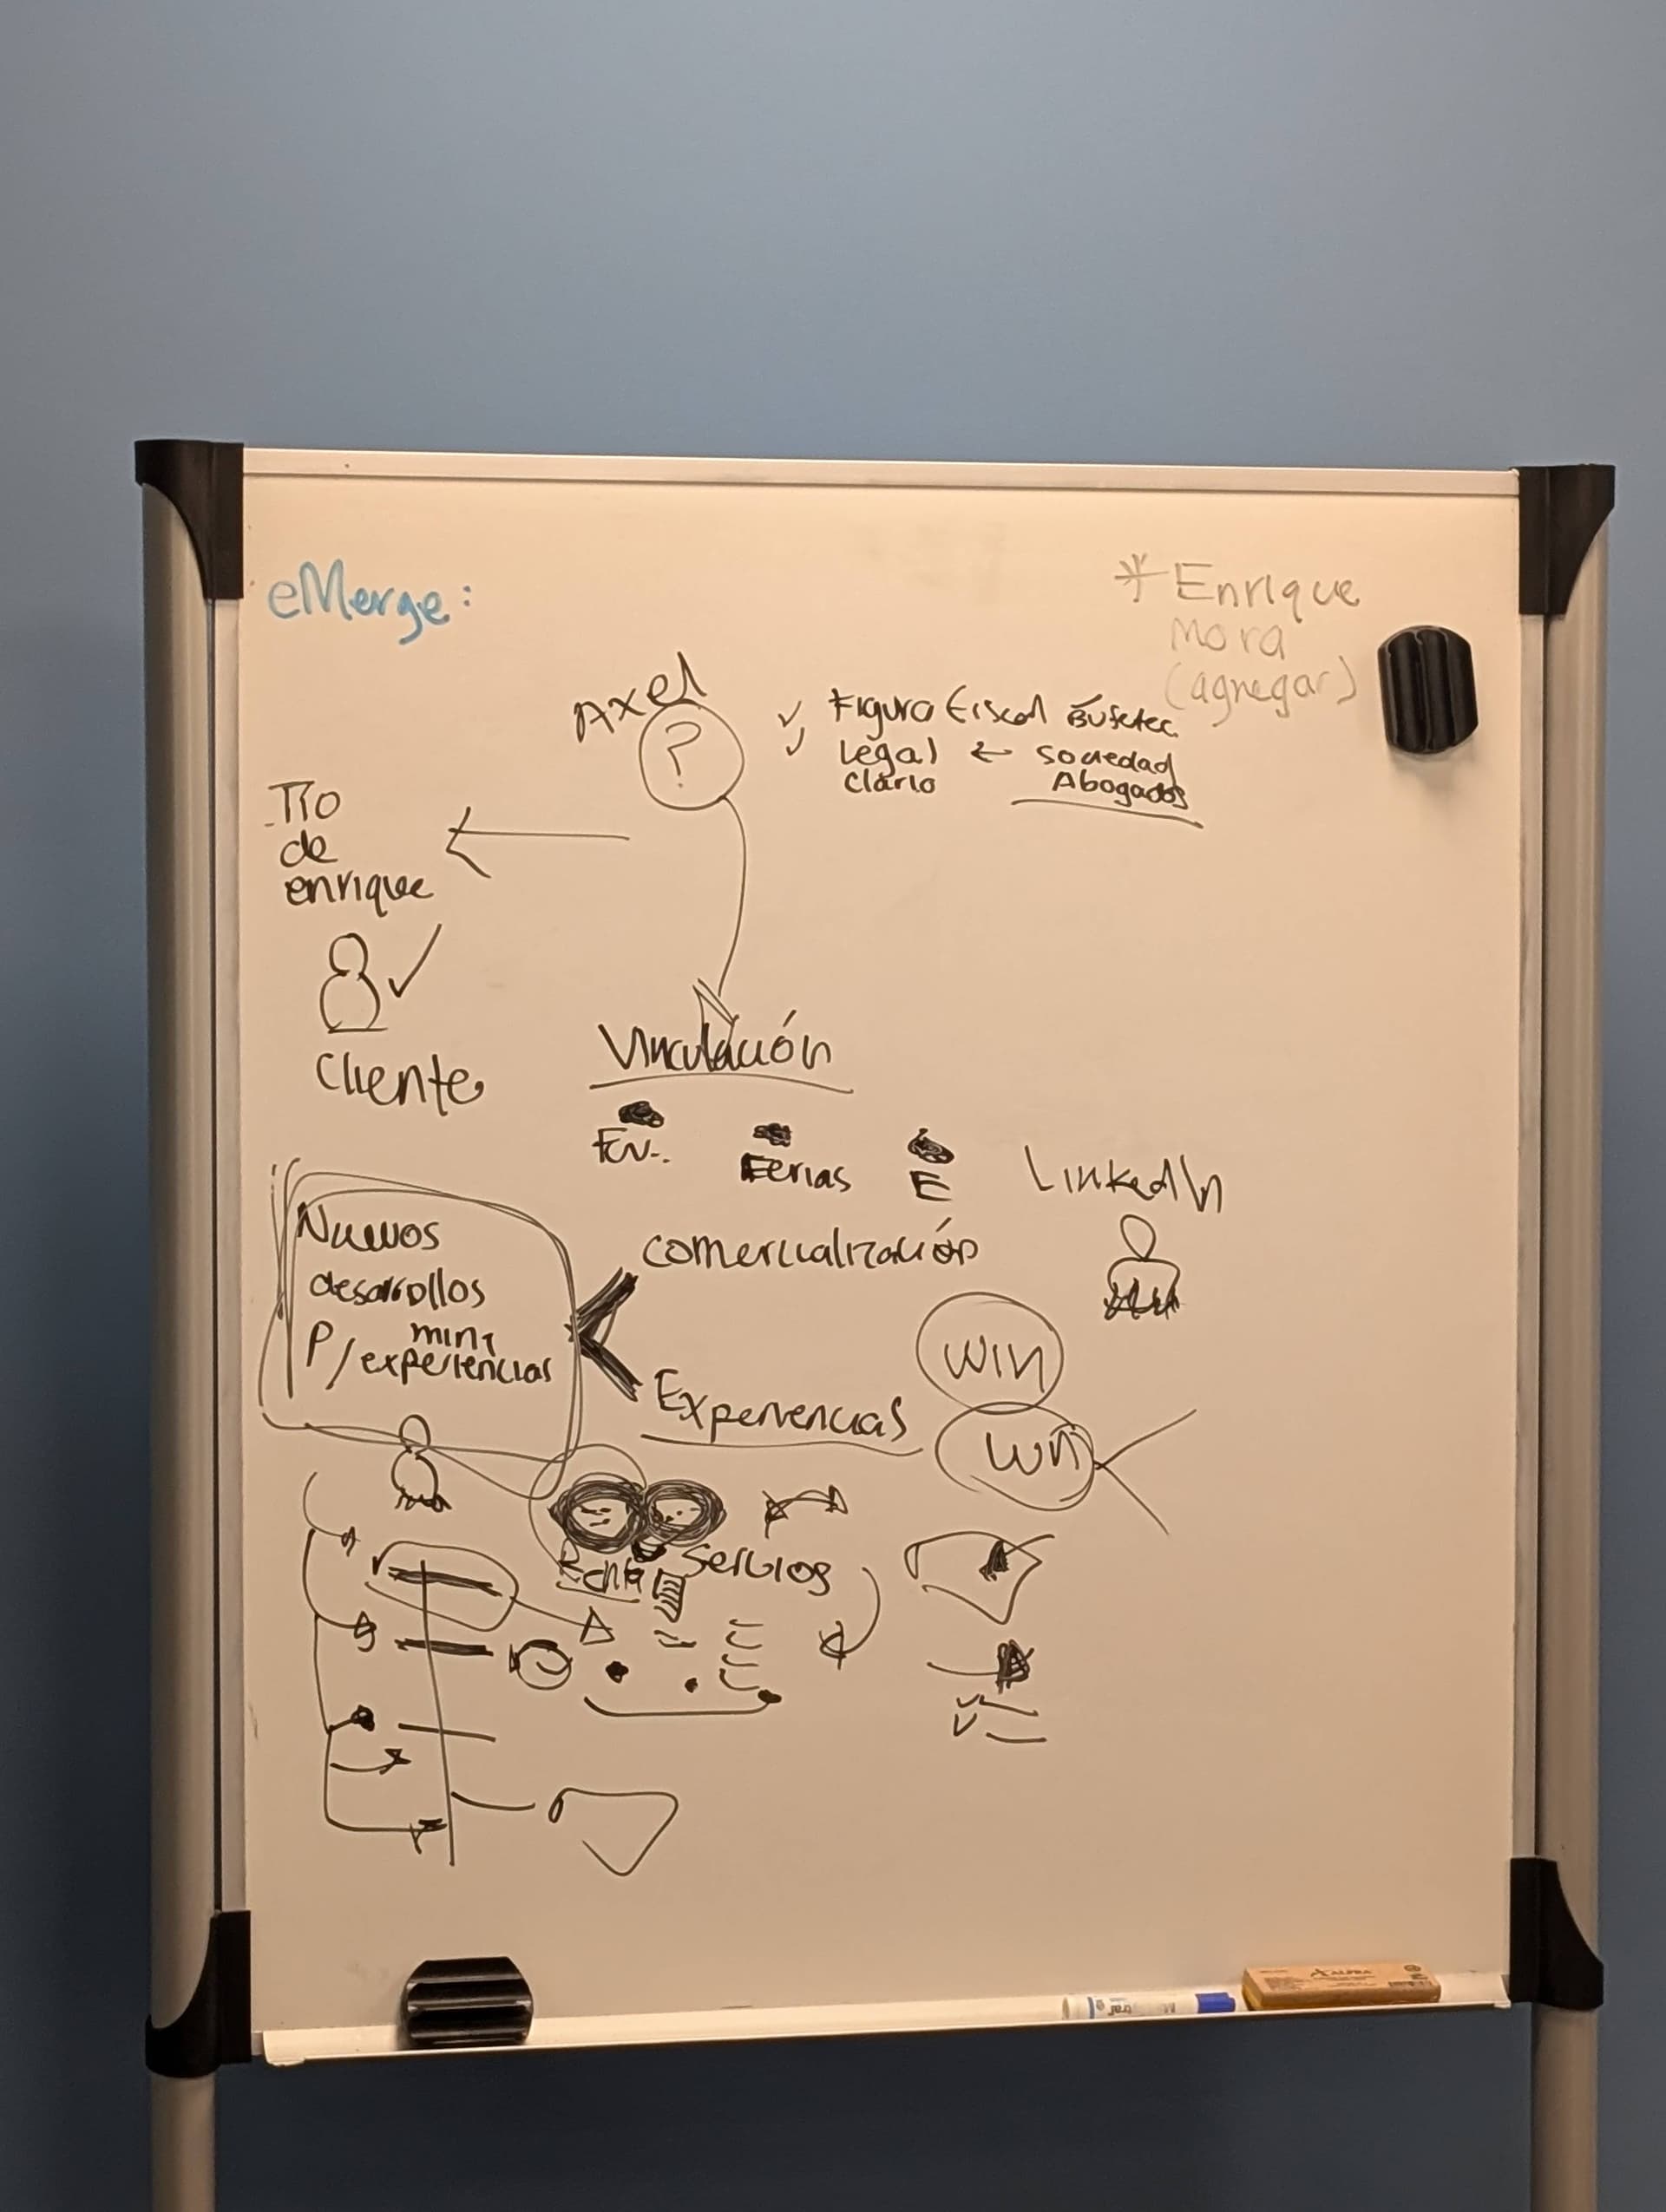 eMerge:
* Enrique
Mora
(agregar)
Axel
?
✓ Figura Fiscal Bufetec
✓ Legal ← Sociedad
Clario Abogados
Tío
de
enrique
✓
Cliente
Vinculación
Ferias
E
LinkedIn
Nuevos
desarrollos
mini
P/experiencias
comercialización
Experiencias
Win
Win
Servicios
ALPHA